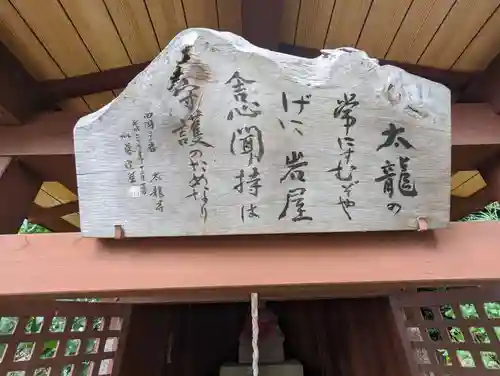 太龍の
常にすむぞや
げに岩屋
舎心聞持は
守護のためなり
太龍寺